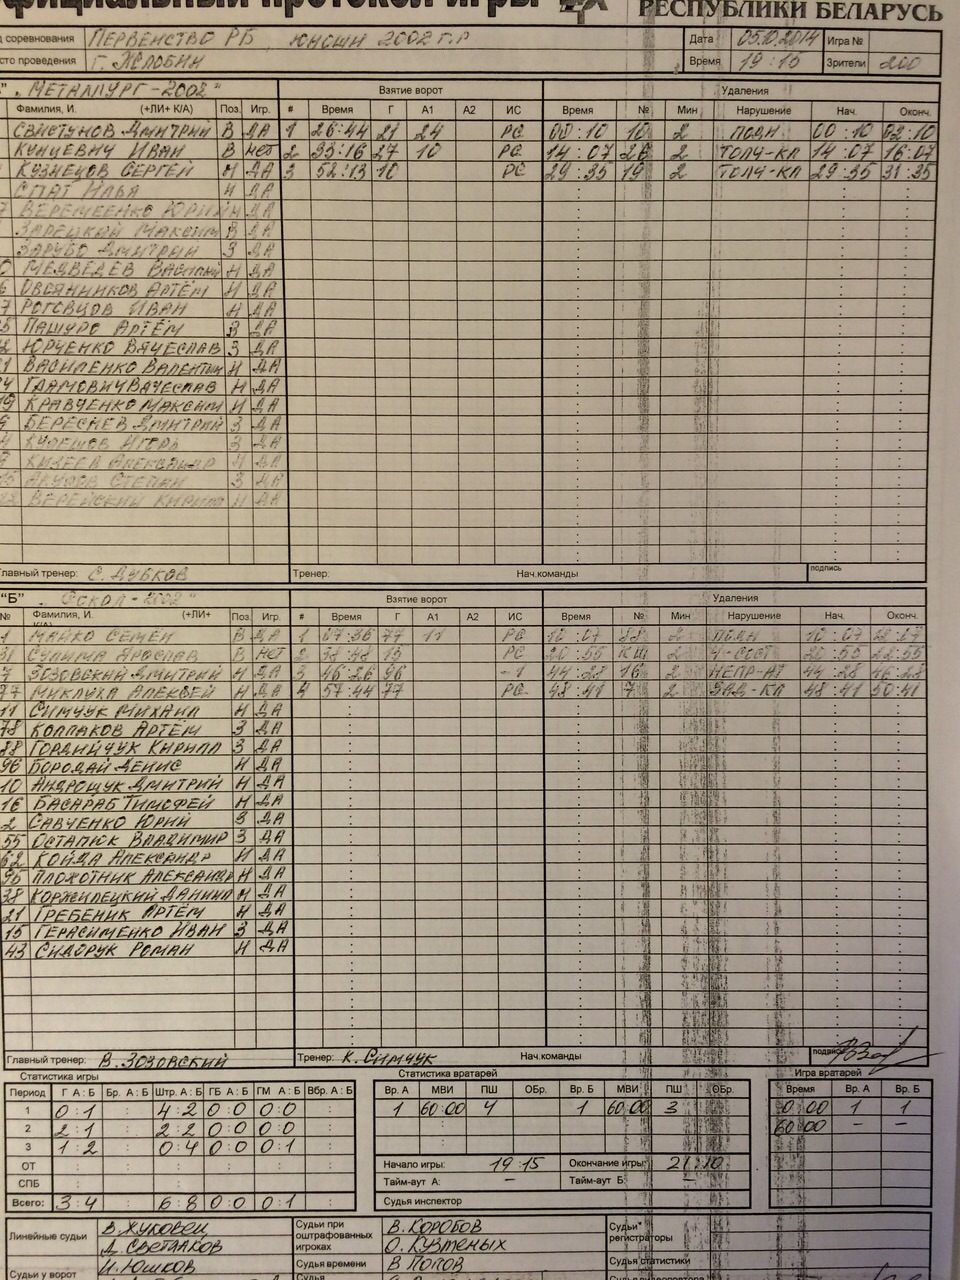 Официальный протокол игры
РЕСПУБЛИКИ БЕЛАРУСЬ
соревнования ПЕРВЕНСТВО РБ ЮНОШИ 2002 Г.Р Дата 05.10.2014 Игра №
сто проведения Г. ЖЛОБИН Время 19:15 Зрители 200
" . МЕТАЛЛУРГ-2002 " Взятие ворот Удаления
Фамилия, И. (+ЛИ+ К/А) Поз. Игр. # Время Г А1 А2 ИС Время № Мин Нарушение Нач. Оконч.
СВИСТУНОВ ДМИТРИЙ В ДА 1 26:44 21 24 РС 00:10 10 2 ПОДН 00:10 02:10
КУНЦЕВИЧ ИВАН В НЕТ 2 33:16 27 10 РС 14:07 2 ТОЛЧ-КЛ 14:07 16:07
КУЗНЕЦОВ СЕРГЕЙ Н ДА 3 52:13 10 РС 29:35 19 2 ТОЛЧ-КЛ 29:35 31:35
СПАТ ИЛЬЯ Н ДА
ВЕРЕМЕЕНКО ЮРИЙ Н ДА
ЗАРЕЦКИЙ МАКСИМ В ДА
ЗАРУБО ДМИТРИЙ З ДА
МЕДВЕДЕВ ВАСИЛИЙ Н ДА
ОВСЯННИКОВ АРТЁМ Н ДА
РОГОВЦОВ ИВАН Н ДА
ПАШУРО АРТЁМ З ДА
ЮРЧЕНКО ВЯЧЕСЛАВ З ДА
ВАСИЛЕНКО ВАЛЕНТИН Н ДА
ГДАМОВИЧ ВЯЧЕСЛАВ Н ДА
КРАВЧЕНКО МАКСИМ Н ДА
БЕРЕСНЕВ ДМИТРИЙ З ДА
КУЛЕШОВ ИГОРЬ З ДА
КИЗЕЕВ АЛЕКСАНДР Н ДА
СТЕПАН З ДА
ВЕРЕЙСКИЙ КИРИЛЛ Н ДА
Главный тренер: С. ДУБКОВ Тренер: Нач.команды подпись
"Б" . СОКОЛ-2002 " Взятие ворот Удаления
№ Фамилия, И. (+ЛИ+ К/А) Поз. Игр. # Время Г А1 А2 ИС Время № Мин Нарушение Нач. Оконч.
1 МАЙКО СЕМЁН В ДА 1 07:36 77 11 РС 10:07 88 2 ПОДН 10:07 12:07
31 СУЛИМА ЯРОСЛАВ В НЕТ 2 38:48 15 РС 20:55 КШ 2 Ч-СОСТ 20:55 22:55
7 ЗОЗОВСКИЙ ДМИТРИЙ Н ДА 3 46:26 96 -1 44:28 16 2 НЕПР-АТ 44:28 46:28
77 МИКЛУХА АЛЕКСЕЙ Н ДА 4 57:44 77 РС 48:41 7 2 ЗАД-КЛ 48:41 50:41
11 СИМЧУК МИХАИЛ Н ДА
78 КОЛПАКОВ АРТЁМ З ДА
88 ГОРДИЙЧУК КИРИЛЛ З ДА
96 БОРОДАЙ ДЕНИС Н ДА
10 АНДРОЩУК ДМИТРИЙ Н ДА
16 БАСАРАБ ТИМОФЕЙ Н ДА
2 САВЧЕНКО ЮРИЙ З ДА
55 ОСТАПЮК ВЛАДИМИР З ДА
62 КОЙДА АЛЕКСАНДР Н ДА
95 ПЛОХОТНИК АЛЕКСАНДР Н ДА
38 КОРЖИЛЕЦКИЙ ДАНИИЛ Н ДА
21 ГРЕБЕНИК АРТЁМ Н ДА
15 ГЕРАСИМЕНКО ИВАН З ДА
43 СИДОРУК РОМАН Н ДА
Главный тренер: В. ЗОЗОВСКИЙ Тренер: К. СИМЧУК Нач.команды подпись
Статистика игры Статистика вратарей Игра вратарей
Период Г А : Б Бр. А : Б Штр. А : Б ГБ А : Б ГМ А : Б Вбр. А : Б Вр. А МВИ ПШ ОБр. Вр. Б МВИ ПШ ОБр. Время Вр. А Вр. Б
1 0:1 : 4:2 0:0 0:0 : 1 60:00 4 1 60:00 3 0:00 1 1
2 2:1 : 2:2 0:0 0:0 : 60:00 – –
3 1:2 : 0:4 0:0 0:1 :
ОТ Начало игры: 19:15 Окончание игры: 21:10
СПБ Тайм-аут А: – Тайм-аут Б: –
Всего: 3:4 : 6:8 0:0 0:1 : Судья инспектор
Линейные судьи В. ЖУКОВЕЦ Судьи при оштрафованных игроках В. КОРОБОВ Судьи регистраторы
Д. СВЕТЛАКОВ О. КУЗМЕНЫХ
Судьи у ворот И. ЮШКОВ Судья времени В ПОПОВ Судья статистики
Судья